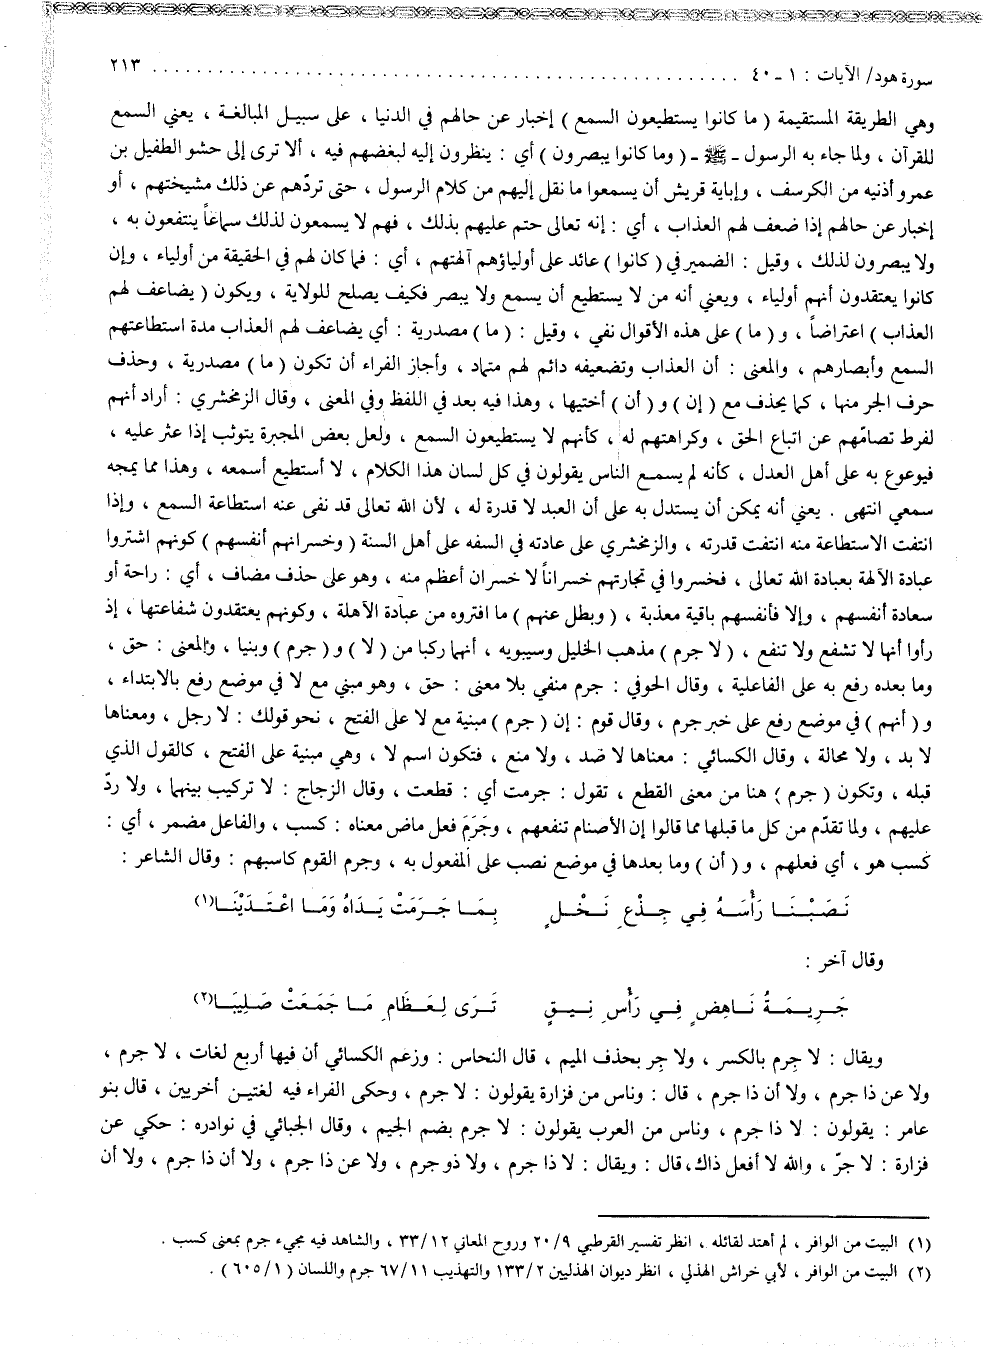 سورة هود/ الآيات : ١ - ٤٠ ............................................................ ٢١٣
وهي الطريقة المستقيمة ( ما كانوا يستطيعون السمع ) إخبار عن حالهم في الدنيا ، على سبيل المبالغة ، يعني السمع
للقرآن ، ولما جاء به الرسول - ﷺ - ( وما كانوا يبصرون ) أي : ينظرون إليه لبغضهم فيه ، ألا ترى إلى حشو الطفيل بن
عمرو أذنيه من الكرسف ، وإباية قريش أن يسمعوا ما نقل إليهم من كلام الرسول ، حتى تردّهم عن ذلك مشيختهم ، أو
إخبار عن حالهم إذا ضعف لهم العذاب ، أي : إنه تعالى حتم عليهم بذلك ، فهم لا يسمعون لذلك سماعاً ينتفعون به ،
ولا يبصرون لذلك ، وقيل : الضمير في ( كانوا ) عائد على أولياؤهم آلهتهم ، أي : فما كان لهم في الحقيقة من أولياء ، وإن
كانوا يعتقدون أنهم أولياء ، ويعني أنه من لا يستطيع أن يسمع ولا يبصر فكيف يصلح للولاية ، ويكون ( يضاعف لهم
العذاب ) اعتراضاً ، و ( ما ) على هذه الأقوال نفي ، وقيل : ( ما ) مصدرية : أي يضاعف لهم العذاب مدة استطاعتهم
السمع وأبصارهم ، والمعنى : أن العذاب وتضعيفه دائم لهم متماد ، وأجاز الفراء أن تكون ( ما ) مصدرية ، وحذف
حرف الجر منها ، كما يحذف مع ( إن ) و ( أن ) أختيها ، وهذا فيه بعد في اللفظ وفي المعنى ، وقال الزمخشري : أراد أنهم
لفرط تصامّهم عن اتباع الحق ، وكراهتهم له ، كأنهم لا يستطيعون السمع ، ولعل بعض المجبرة يتوثب إذا عثر عليه ،
فيوعوع به على أهل العدل ، كأنه لم يسمع الناس يقولون في كل لسان هذا الكلام ، لا أستطيع أسمعه ، وهذا مما يمجه
سمعي انتهى . يعني أنه يمكن أن يستدل به على أن العبد لا قدرة له ، لأن الله تعالى قد نفى عنه استطاعة السمع ، وإذا
انتفت الاستطاعة منه انتفت قدرته ، والزمخشري على عادته في السفه على أهل السنة ( وخسرانهم أنفسهم ) كونهم اشتروا
عبادة الآلهة بعبادة الله تعالى ، فخسروا في تجارتهم خسراناً لا خسران أعظم منه ، وهو على حذف مضاف ، أي : راحة أو
سعادة أنفسهم ، وإلا فأنفسهم باقية معذبة ، ( وبطل عنهم ) ما افتروه من عبادة الآهلة ، وكونهم يعتقدون شفاعتها ، إذ
رأوا أنها لا تشفع ولا تنفع ، ( لا جرم ) مذهب الخليل وسيبويه ، أنهما ركبا من ( لا ) و ( جرم ) وبنيا ، والمعنى : حق ،
وما بعده رفع به على الفاعلية ، وقال الحوفي : جرم منفي بلا معنى : حق ، وهو مبني مع لا في موضع رفع بالابتداء ،
و ( أنهم ) في موضع رفع على خبر جرم ، وقال قوم : إن ( جرم ) مبنية مع لا على الفتح ، نحو قولك : لا رجل ، ومعناها
لا بد ، ولا محالة ، وقال الكسائي : معناها لا ضد ، ولا منع ، فتكون اسم لا ، وهي مبنية على الفتح ، كالقول الذي
قبله ، وتكون ( جرم ) هنا من معنى القطع ، تقول : جرمت أي : قطعت ، وقال الزجاج : لا تركيب بينهما ، ولا ردّ
عليهم ، ولما تقدّم من كل ما قبلها مما قالوا إن الأصنام تنفعهم ، وجَرَمَ فعل ماض معناه : كسب ، والفاعل مضمر ، أي :
كسب هو ، أي فعلهم ، و ( أن ) وما بعدها في موضع نصب على المفعول به ، وجرم القوم كاسبهم : وقال الشاعر :
نَصَبْنَا رَأْسَهُ فِي جِذْعِ نَخْلٍ بِمَا جَرَمَتْ يَدَاهُ وَمَا اعْتَدَيْنَا(١)
وقال آخر :
جَرِيمَةُ نَاهِضٍ فِي رَأْسِ نِيقٍ تَرَى لِعَظَامِ مَا جَمَعَتْ صَلِيبَا(٢)
ويقال : لا جِرم بالكسر ، ولا جِر بحذف الميم ، قال النحاس : وزعم الكسائي أن فيها أربع لغات ، لا جرم ،
ولا عن ذا جرم ، ولا أن ذا جرم ، قال : وناس من فزارة يقولون : لا جرم ، وحكى الفراء فيه لغتين أخريين ، قال بنو
عامر : يقولون : لا ذا جرم ، وناس من العرب يقولون : لا جرم بضم الجيم ، وقال الجبائي في نوادره : حكي عن
فزارة : لا جرّ ، والله لا أفعل ذاك، قال : ويقال : لا ذا جرم ، ولا ذو جرم ، ولا عن ذا جرم ، ولا أن ذا جرم ، ولا أن
(١) البيت من الوافر ، لم أهتد لقائله ، انظر تفسير القرطبي ٢٠/٩ وروح المعاني ٣٣/١٢ ، والشاهد فيه مجيء جرم بمعنى كسب .
(٢) البيت من الوافر ، لأبي خراش الهذلي ، انظر ديوان الهذليين ١٣٣/٢ والتهذيب ٦٧/١١ جرم واللسان ( ٦٠٥/١ ) .